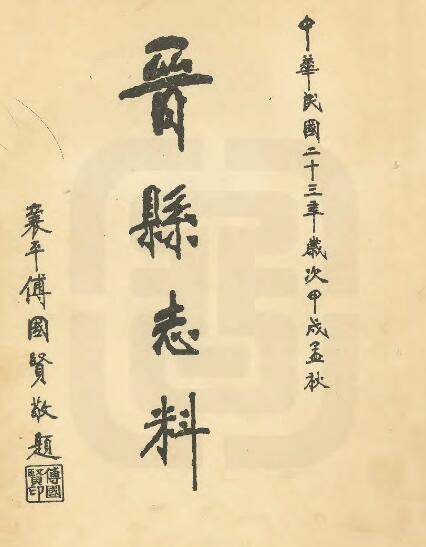 中華民國二十三年歲次甲戌孟秋
晉縣志料
襄平傅國賢敬題
傅國賢印